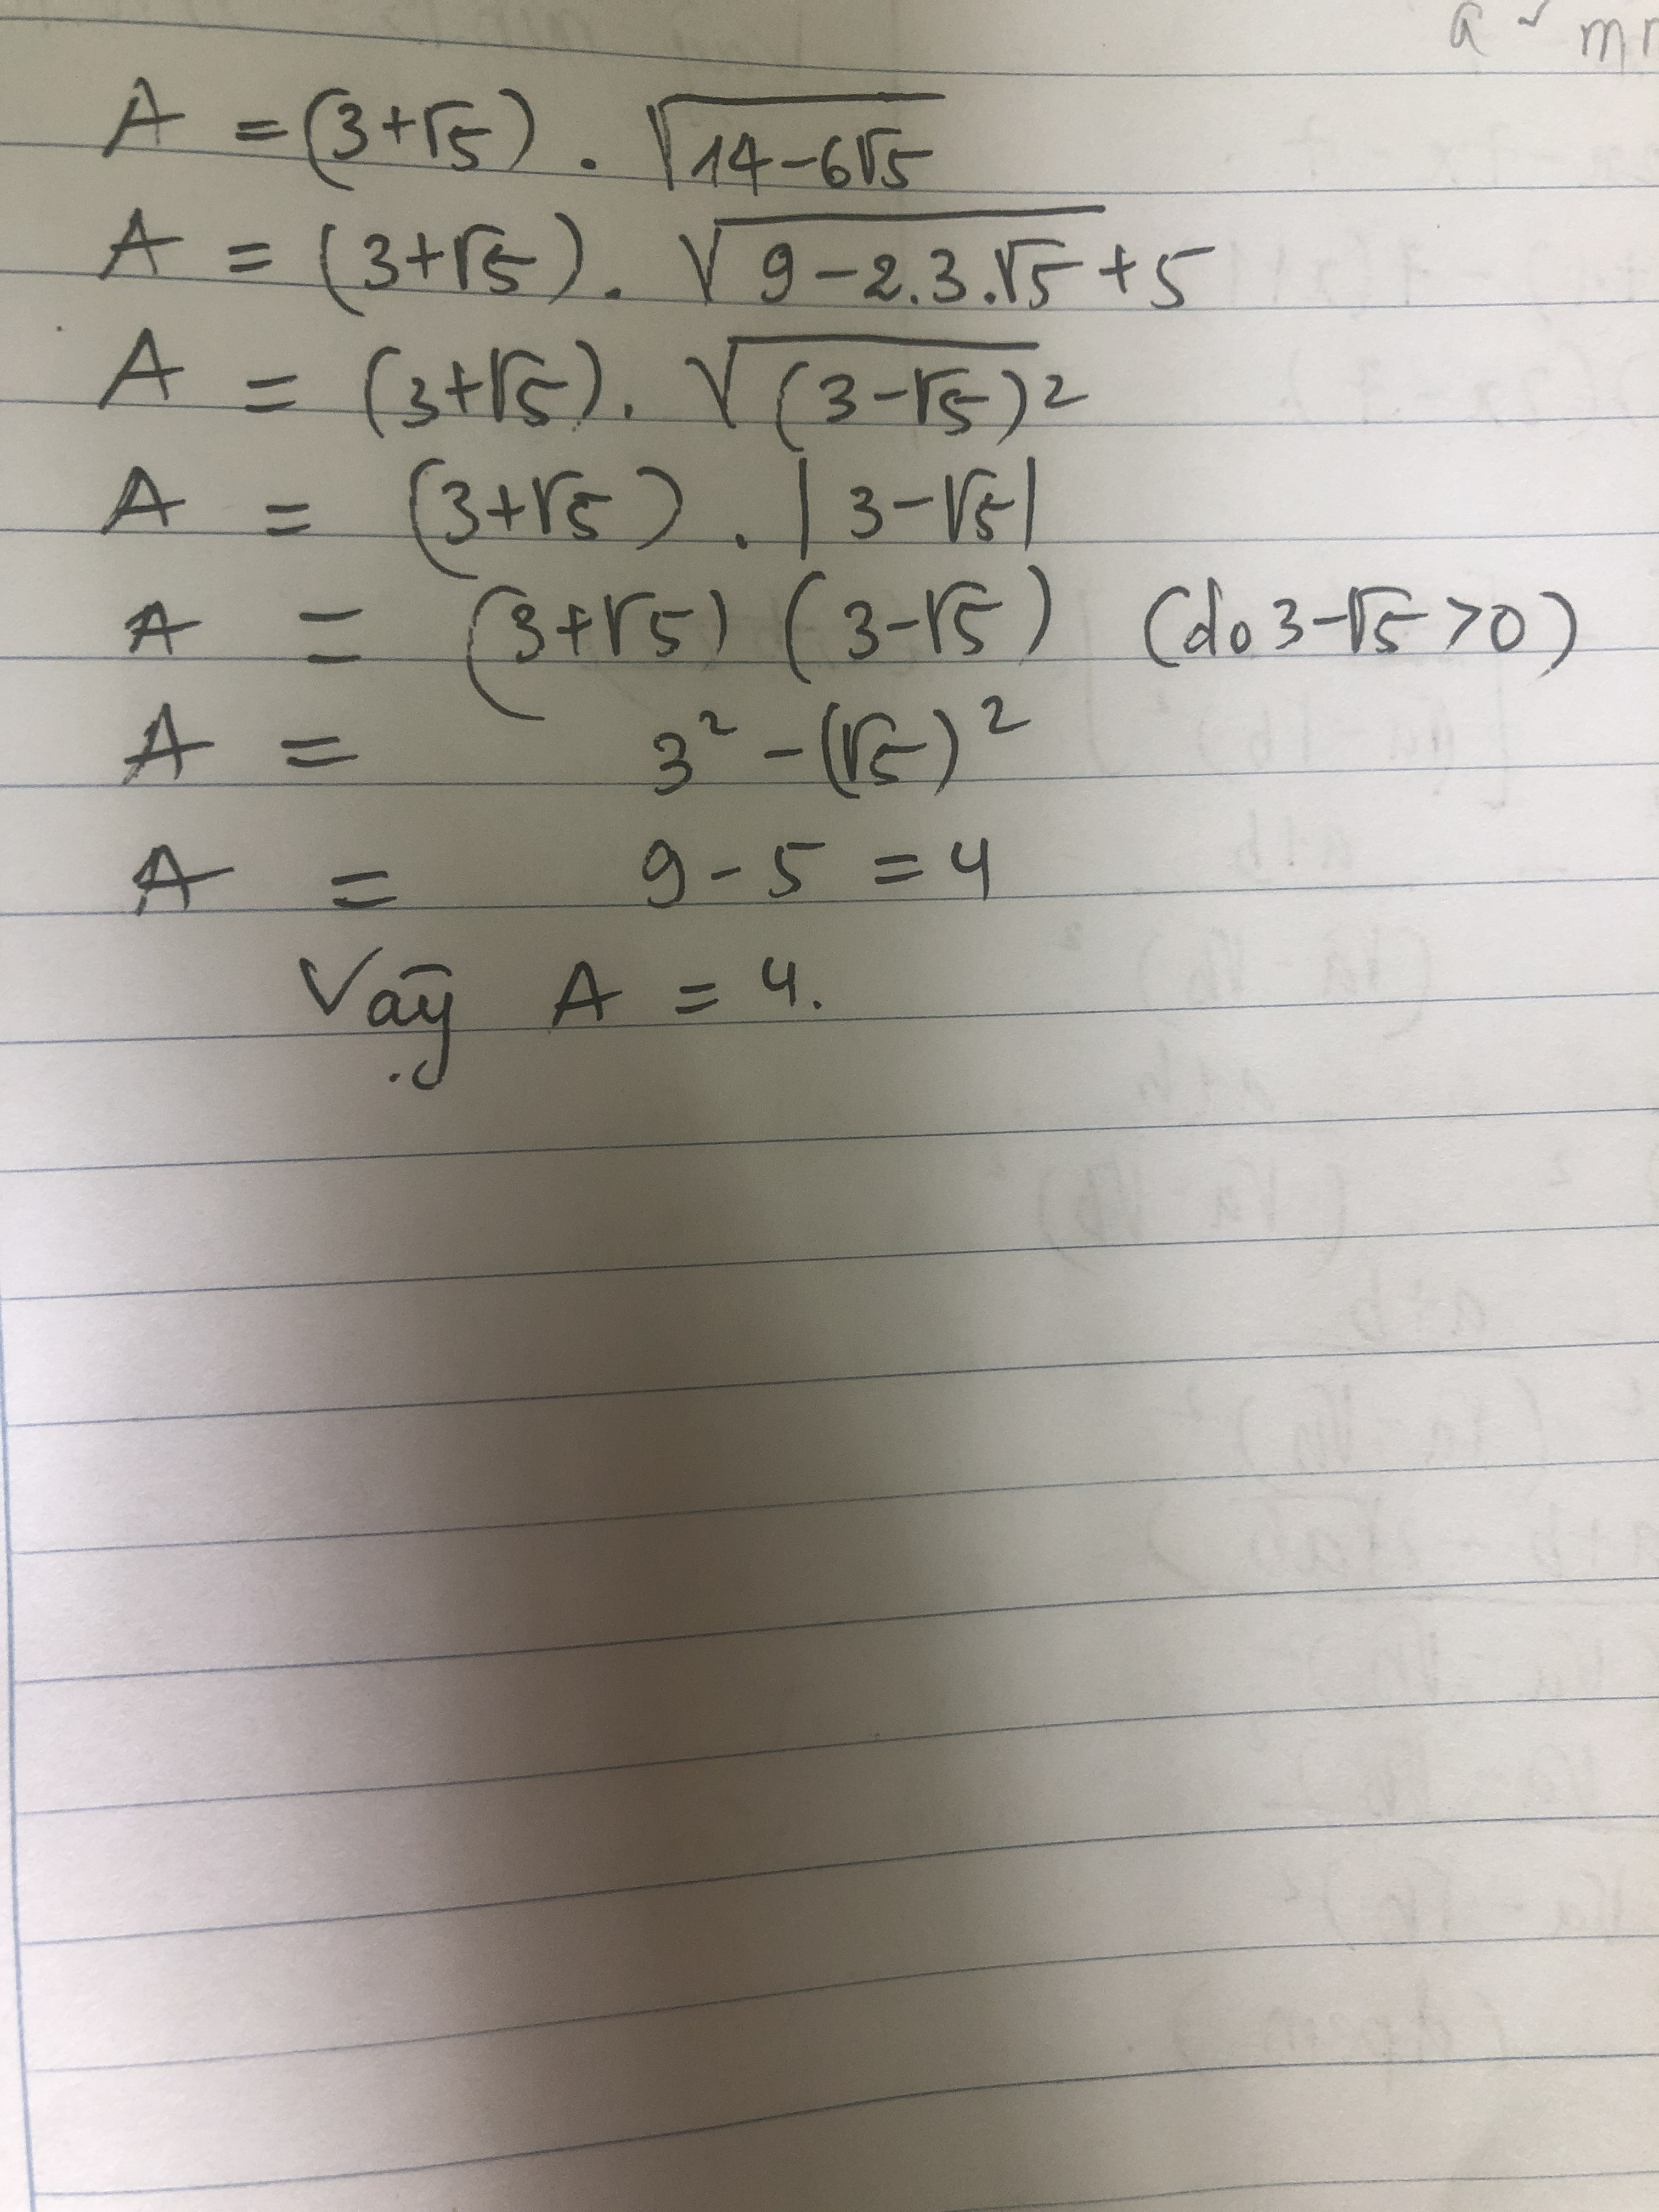 A = (3+√5) . √(14-6√5)
A = (3+√5) . √(9-2.3.√5)+5
A = (3+√5) . √(3-√5)²
A = (3+√5) . |3-√5|
A = (3+√5) (3-√5) (do 3-√5 >0)
A = 3² - (√5)²
A = 9 - 5 = 4
Vậy A = 4.